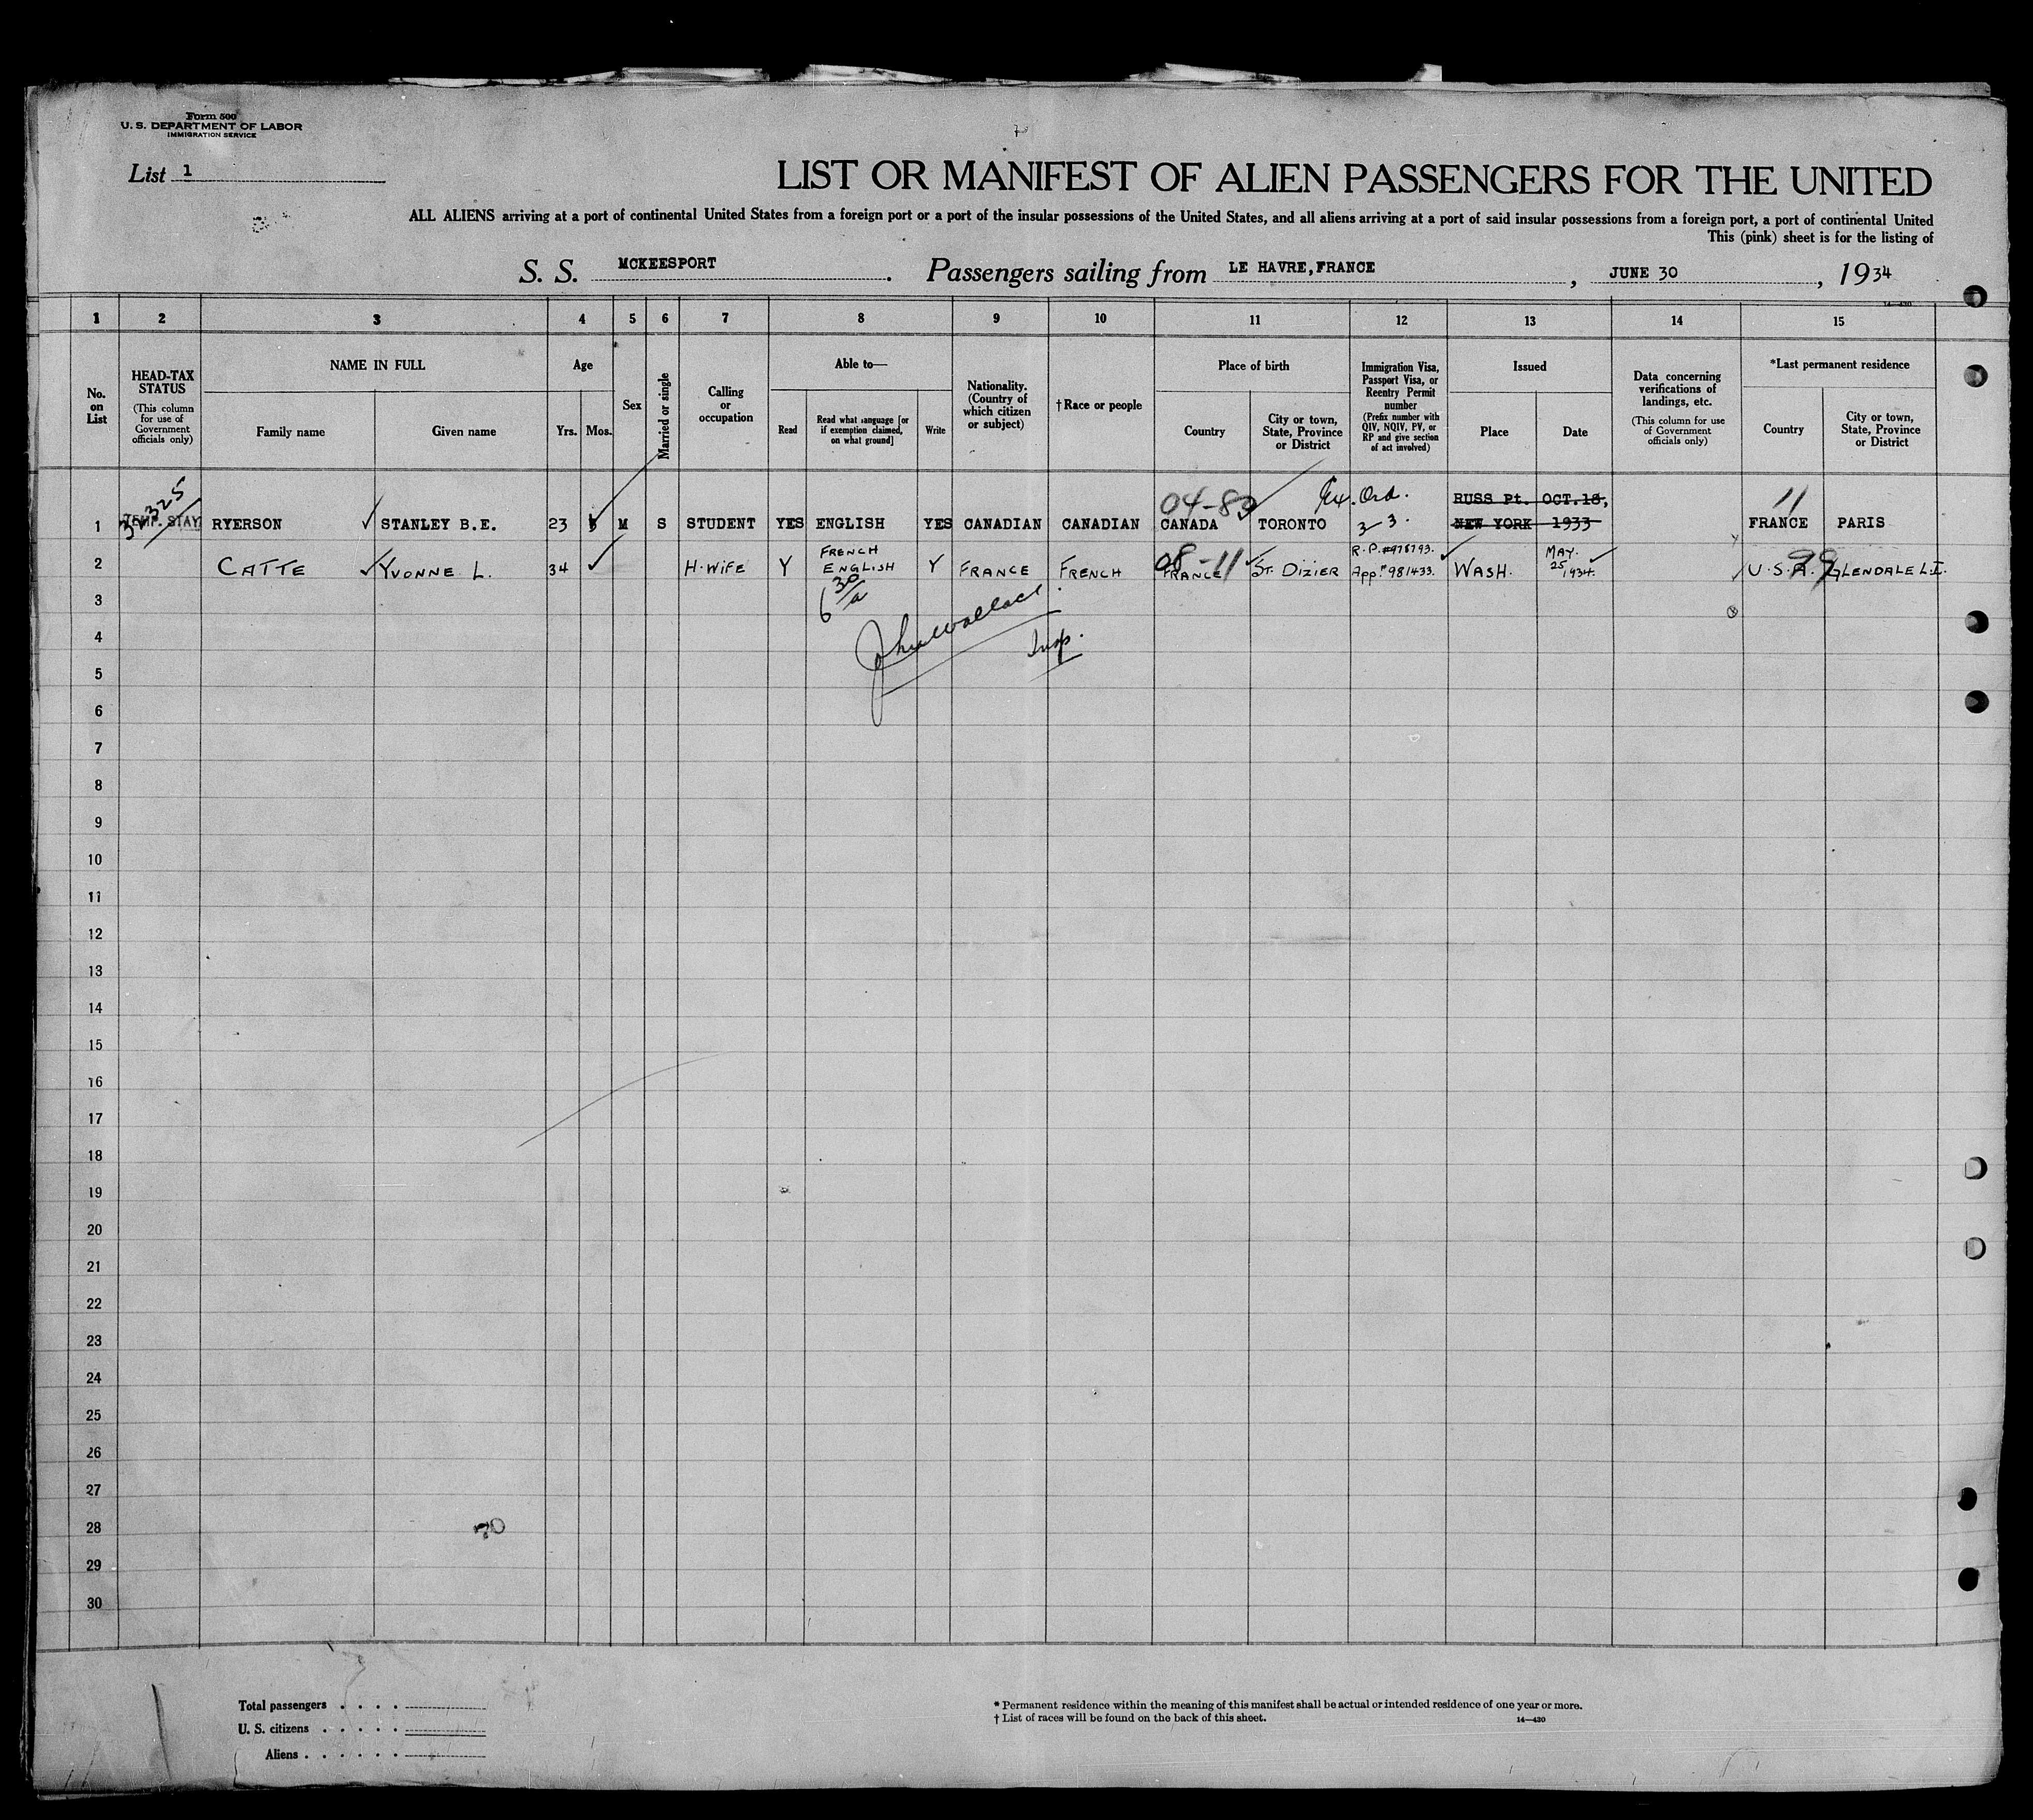 Form 500
U. S. DEPARTMENT OF LABOR
IMMIGRATION SERVICE
List 1
LIST OR MANIFEST OF ALIEN PASSENGERS FOR THE UNITED
ALL ALIENS arriving at a port of continental United States from a foreign port or a port of the insular possessions of the United States, and all aliens arriving at a port of said insular possessions from a foreign port, a port of continental United
This (pink) sheet is for the listing of
S. S. MCKEESPORT. Passengers sailing from LE HAVRE, FRANCE, JUNE 30, 1934
14—430
1 2 3 4 5 6 7 8 9 10 11 12 13 14 15
No. on List
HEAD-TAX STATUS
(This column for use of Government officials only)
NAME IN FULL
Family name
Given name
Age
Yrs.
Mos.
Sex
Married or single
Calling or occupation
Able to—
Read
Read what language [or if exemption claimed, on what ground]
Write
Nationality. (Country of which citizen or subject)
†Race or people
Place of birth
Country
City or town, State, Province or District
Immigration Visa, Passport Visa, or Reentry Permit number
(Prefix number with QIV, NQIV, PV, or RP and give section of act involved)
Issued
Place
Date
Data concerning verifications of landings, etc.
(This column for use of Government officials only)
*Last permanent residence
Country
City or town, State, Province or District
04-83 Ex. Ord. RUSS Pt. OCT.18, 11
1 TEMP. STAY RYERSON STANLEY B.E. 23 M S STUDENT YES ENGLISH YES CANADIAN CANADIAN CANADA TORONTO 3-3. NEW YORK 1933 FRANCE PARIS
FRENCH 08-11 R.P. #978793. MAY. 99
2 CATTE YVONNE L. 34 H-WIFE Y ENGLISH Y FRANCE FRENCH FRANCE ST. DIZIER App.# 981433. WASH. 25 1934. U.S.A. GLENDALE L.I.
6 30/a
3
John Wallace
4
Insp.
5
6
7
8
9
10
11
12
13
14
15
16
17
18
19
20
21
22
23
24
25
26
27
28
29
30
Total passengers
U. S. citizens
Aliens
* Permanent residence within the meaning of this manifest shall be actual or intended residence of one year or more.
† List of races will be found on the back of this sheet.
14—430